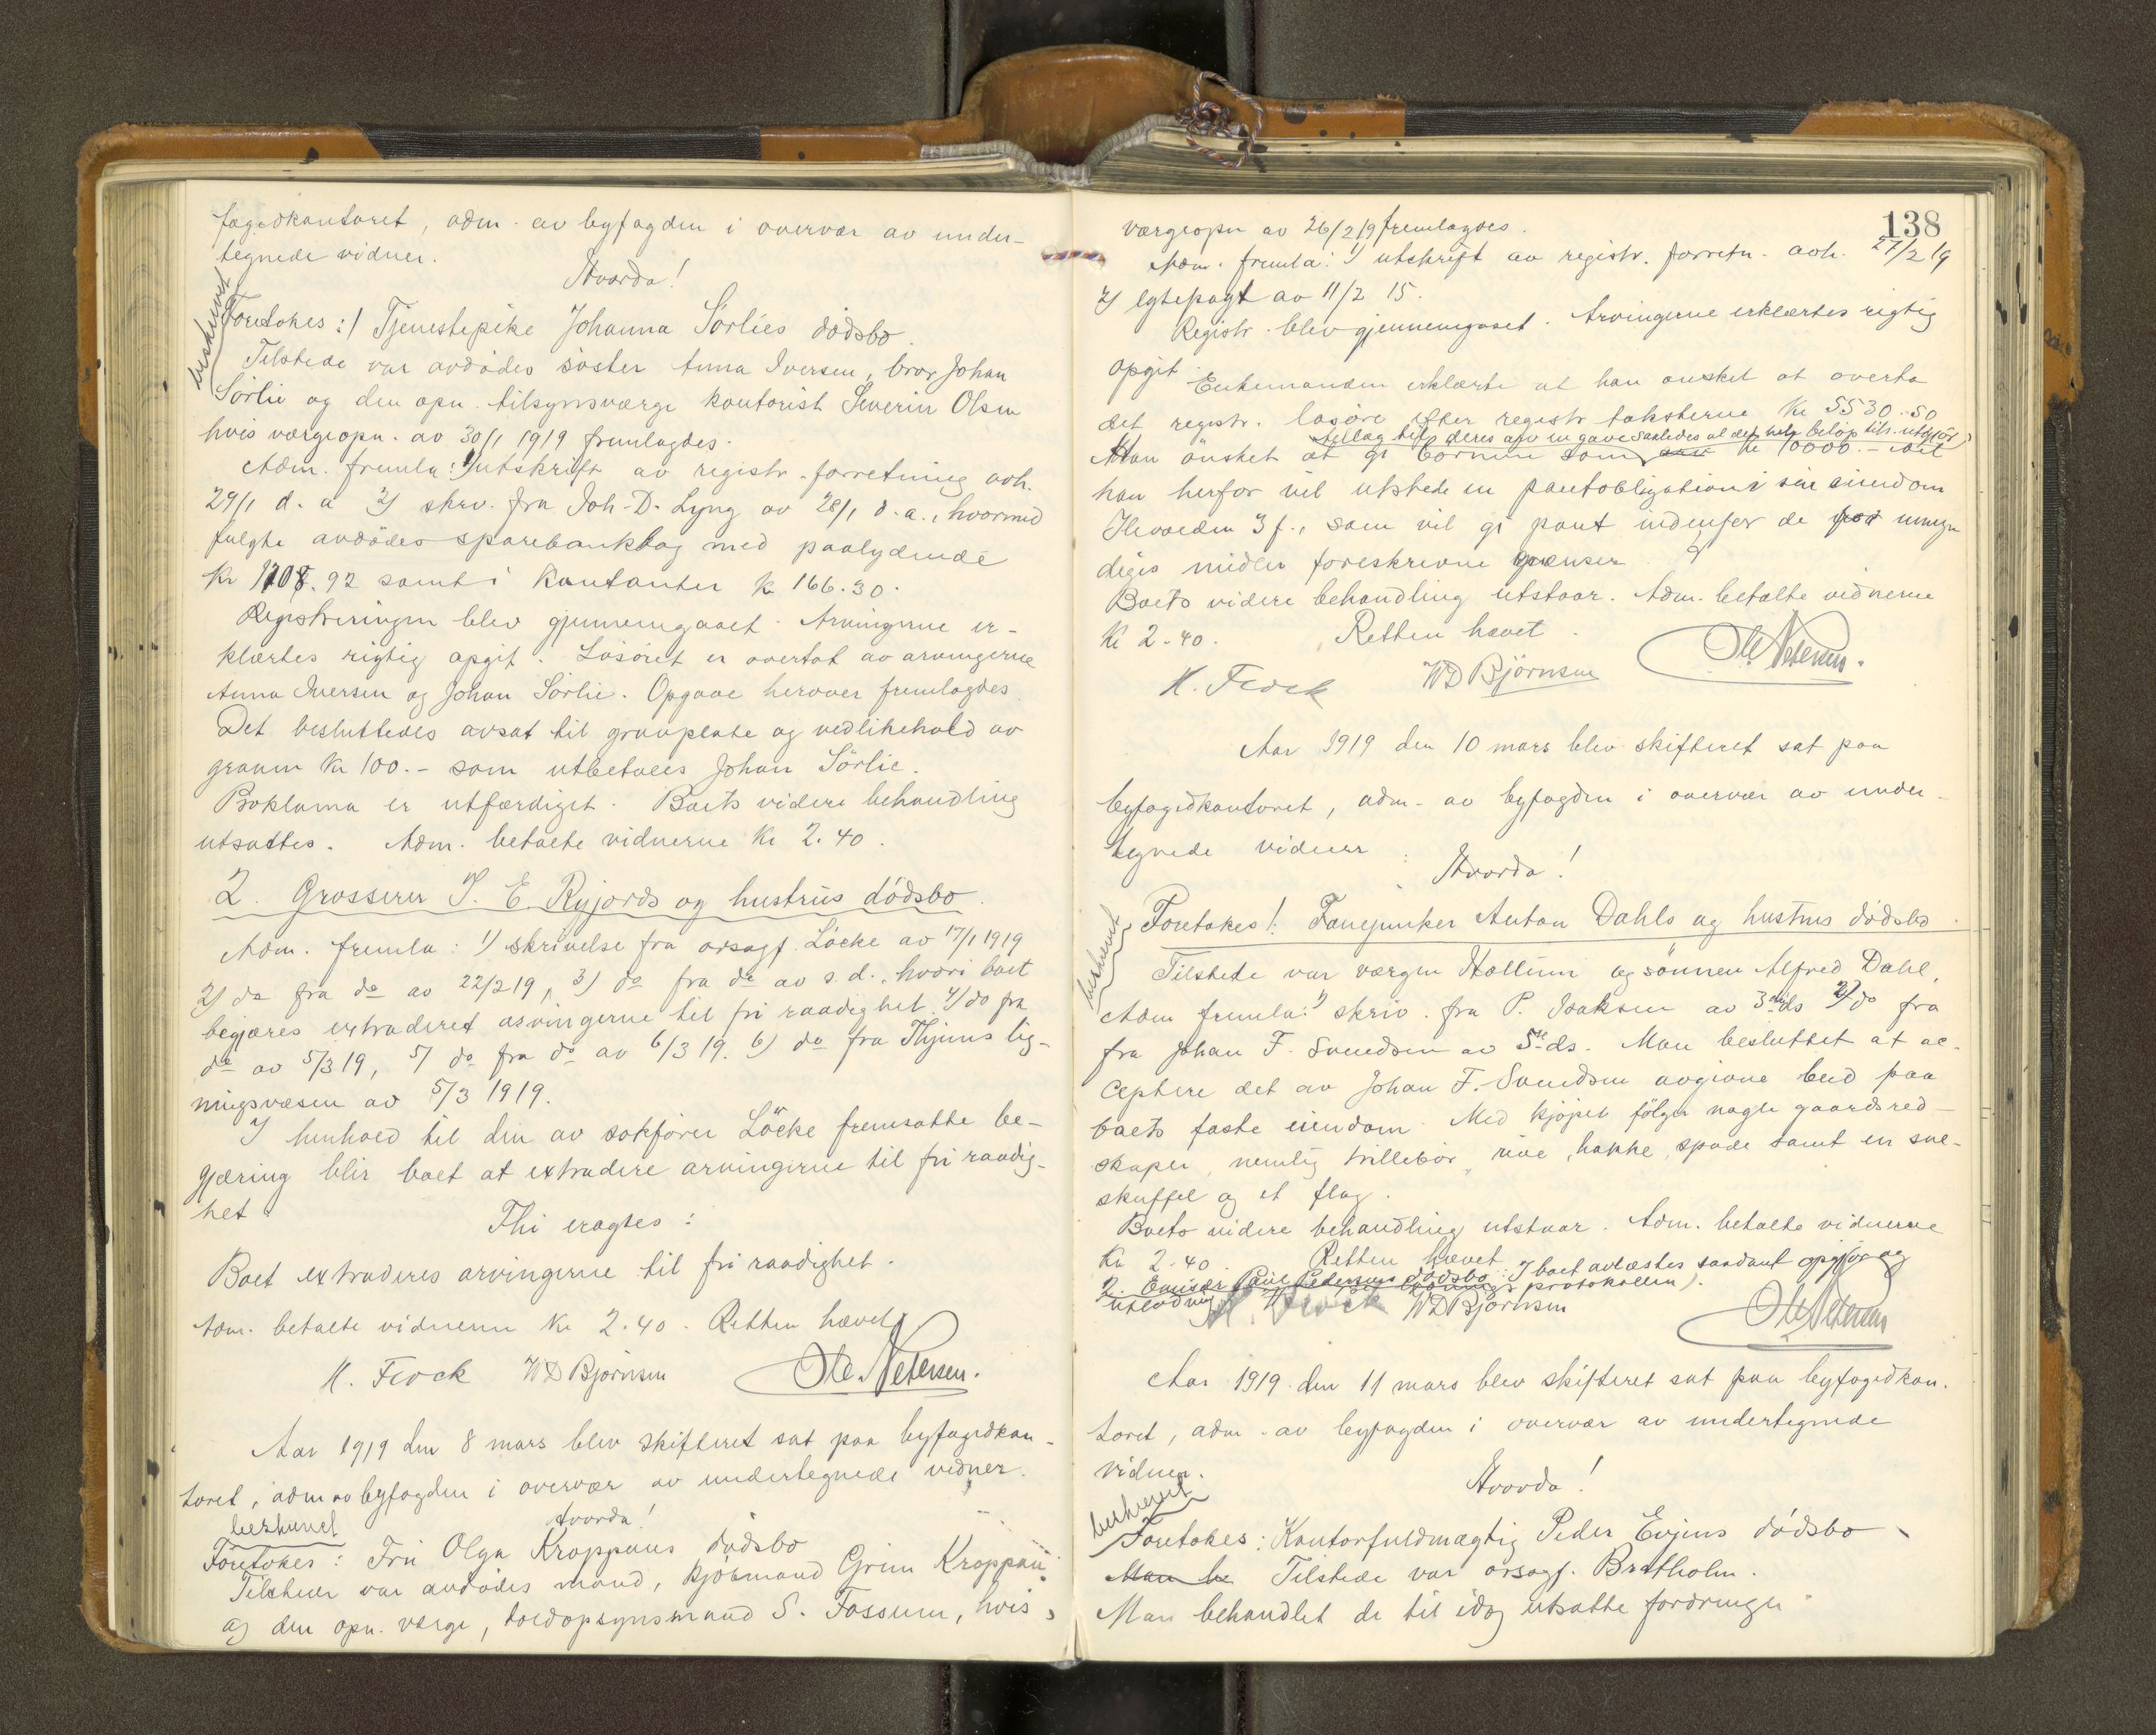 fogedkontoret, adm. av byfogden i overvær av under-
tegnede vidner.
Hvorda!
beskrevet
Foretokes: 1 Tjenestepike Johanna Sörlies dödsbo.
Tilstede var avdödes söster Anna Iversen, bror Johan
Sörlie og den opn. tilsynsværge kontorist Severin Olsen
hvis værgeopn. av 30/1 1919 fremlagdes.
Adm. fremla: 1) utskrift av registr. forretning avh.
29/1 d. a 2) skrv. fra Joh. D. Lyng av 28/1 d. a., hvormed
fulgte avdödes sparebankbog med paalydende
Kr 1708.92 samt i kontanter kr 166.30.
Registreringen blev gjennemgaaet. Arvingerne er-
klærtes rigtig opgit. Lösöret er overtat av arvingerne
Anna Iversen og Johan Sörlie. Opgave herover fremlagdes.
Det besluttedes avsat til gravplate og vedlikehold av
graven Kr 100.- som utbetales Johan Sörlie.
Proklama er utfærdiget. Boets videre behandling
utsattes. Adm. betalte vidnerne Kr 2.40.
2. Grosserer J. E. Ryjords og hustrus dödsbo.
Adm. fremla: 1) skrivelse fra orsagf. Löcke av 17/1 1919
2) do fra do av 22/2 19, 3) do fra do av s. d., hvori boet
begjæres extraderet arvingerne til fri raadighet. 4) do fra
do av 5/3 19, 5) do fra do av 6/3 19. 6) do fra Thjems lig-
ningsvæsen av 5/3 1919.
I henhold til den av sakförer Löcke fremsatte be-
gjæring blir boet at extradere arvingerne til fri raadig-
het.
Thi eragtes:
Boet extraderes arvingerne til fri raadighet.
Adm. betalte vidnerne Kr 2.40. Retten hævet
H. Flock WD Björnsen Ole Petersen.
Aar 1919 den 8 mars blev skifteret sat paa byfogedkon-
toret, adm av byfogden i overvær av undertegnede vidner.
Hvorda!
beskrevet
Foretokes: Fru Olga Kroppans dödsbo
Tilstede var avdödes mand, Kjöbmand Grim Kroppan
og den opn. værge, toldopsynsmand S. Fossum, hvis
138
værgeopn av 26/2 19 fremlagdes.
Adm. fremla: 1) utskrift av registr. forretn. avh. 27/2 19
2) egtepagt av 11/2 15.
Registr. blev gjennemgaaet. Arvingerne erklærtes rigtig
opgit.
Enkemanden erklærte at han önsket at overta
det registr. lösöre efter registr taksterne Kr 5530.50
tillæg til deres arv en gave saaledes at det hele belöp tils. utgjör
Man önsket at gi börnene som Kr 10000.- idet
han herfor vil utstede en pantobligation i sin eiendom
Ilevolden 3 f., som vil gi pant indenfor de for umyn
diges midler foreskrevne grænser.
Boets videre behandling utstaar. Adm. betalte vidnerne
Kr 2.40. Retten hævet.
H. Flock WD Björnsen Ole Petersen.
Aar 1919 den 10 mars blev skifteret sat paa
byfogedkontoret, adm. av byfogden i overvær av under-
tegnede vidner.
Hvorda!
beskrevet
Foretokes 1. Fanejunker Anton Dahls og hustrus dödsbo.
Tilstede var værgen Hallum og sönnen Alfred Dahl.
Adm fremla: 1) skriv. fra P. Isaksen av 3die ds 2) do fra
fra Johan F. Svendsen av 5te ds. Man besluttet at ac-
ceptere det av Johan F. Svendsen avgivne bud paa
boets faste eiendom. Med kjöpet fölger nogle gaardsred-
skaper, nemlig trillebör, rive, hakke, spade samt en sne-
skuffel og et flag.
Boets videre behandling utstaar. Adm. betalte vidnerne
Kr 2.40. Retten hævet
2. Paul Pedersens dödsbo. I boet avlæstes saadant opgjör og
utlodning protokollen).
H. Flock WD Björnsen Ole Petersen
Aar 1919 den 11 mars blev skifteret sat paa byfogedkon-
toret, adm. av byfogden i overvær av undertegnede
vidner.
Hvorda!
beskrevet
Foretokes: Kontorfuldmægtig Peder Evjens dödsbo
Man be Tilstede var orsagf. Bratholm.
Man behandlet de til idag utsatte fordringer